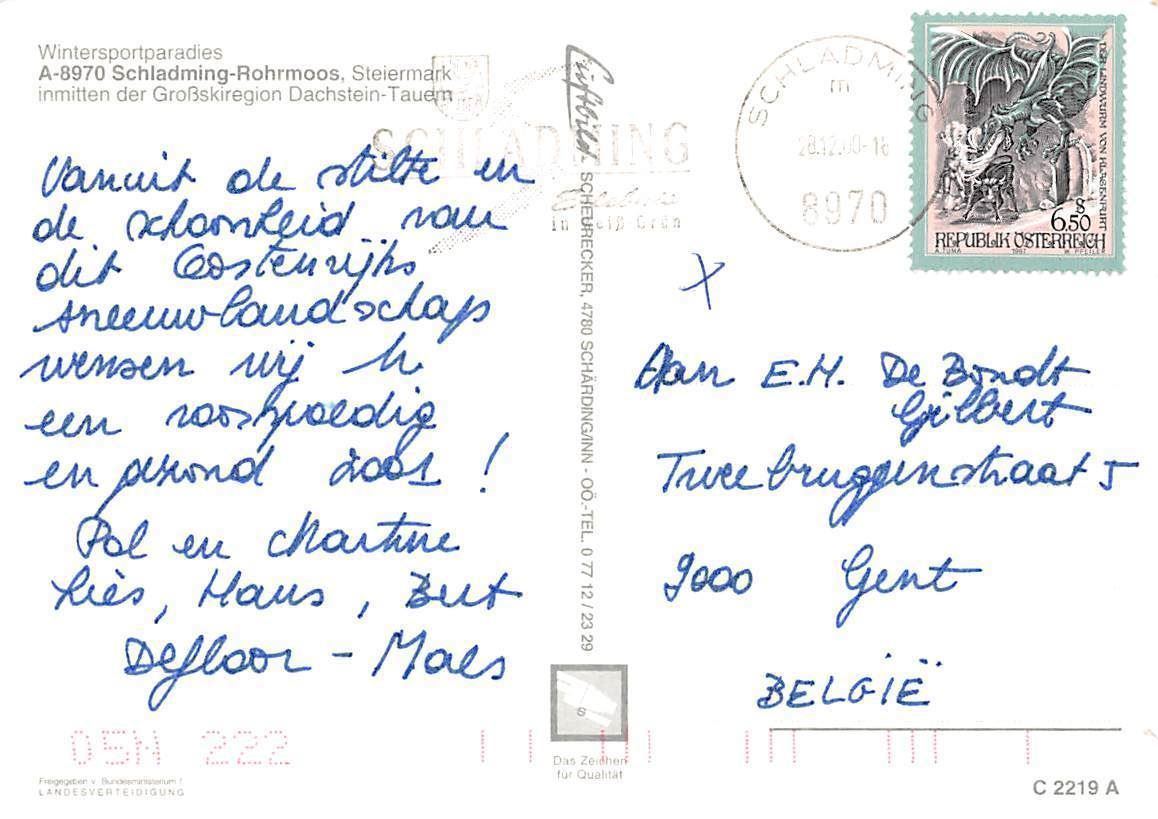 Wintersportparadies
A-8970 Schladming-Rohrmoos, Steiermark
inmitten der Großskiregion Dachstein-Tauern
SCHLADMING
in Weiß Grün
Vanuit de stilte en
de schoonheid van
dit Oostenrijks
sneeuwlandschap
wensen wij U
een voorspoedig
en gezond 2001 !
Pol en Martine
Liès, Hans, Bert
Defloor - Maes
05N 222
Freigegeben v. Bundesministerium f.
LANDESVERTEIDIGUNG
Luftbild SCHEURECKER, 4780 SCHÄRDING/INN - OÖ.-TEL. 0 77 12 / 23 29
S
Das Zeichen
für Qualität
SCHLADMING
m
28.12.00-16
8970
DER LINDWURM VON KLAGENFURT
S
6,50
REPUBLIK ÖSTERREICH
A. TUMA 1997 W. PFEILER
X
Aan E.H. De Bondt
Gilbert
Tweebruggenstraat 5
9000 Gent
BELGIË
C 2219 A